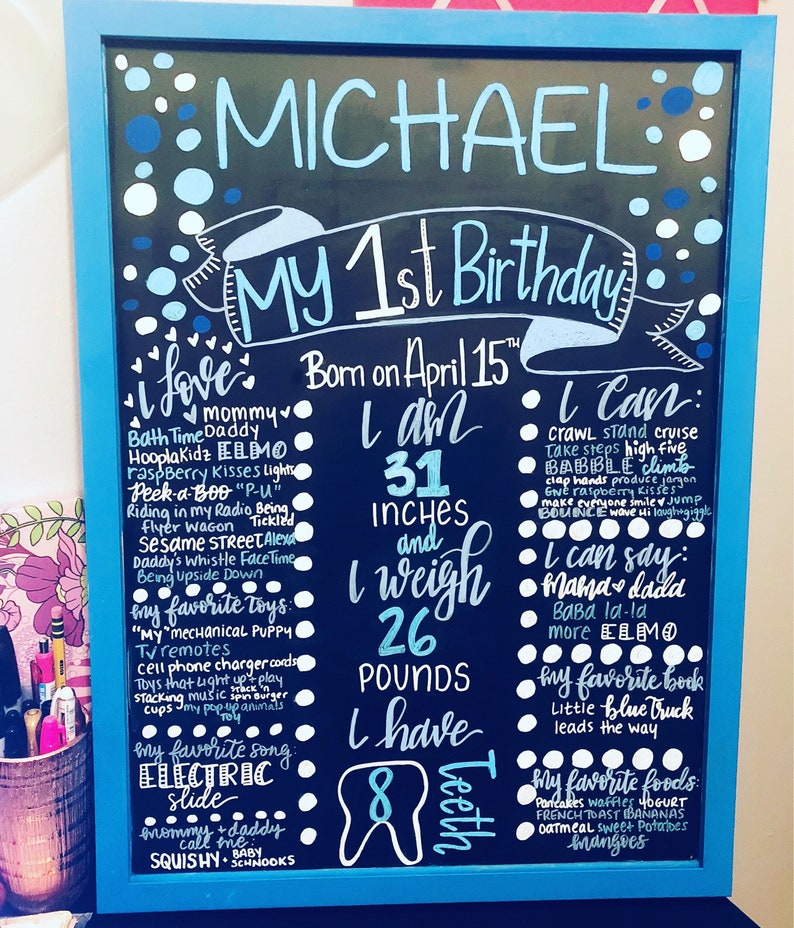 MICHAEL
My 1st Birthday
Born on April 15TH
I love
mommy
Daddy
Bath Time
HooplaKidz ELMO
raspBerry Kisses Lights
Peek-a-Boo "P-U"
Riding in my Radio Being
flyer wagon Tickled
Sesame Street Alexa
Daddy's Whistle FaceTime
Being Upside Down
my favorite toys:
"My" mechanical puppy
TV remotes
cell phone charger cords
Toys that light up + play
stacking music stack 'n
cups spin Burger
my pop up animals
toy
my favorite song:
ELECTRIC
slide
mommy + daddy
call me:
SQUISHY + BABY
SCHNOOKS
I am
31
INCHES
and
I weigh
26
POUNDS
I have
8
Teeth
I can:
CRAWL stand cruise
Take steps high five
BABBLE climb
clap hands produce jargon
Give raspberry kisses
make everyone smile Jump
BOUNCE wave Hi laugh+giggle
I can say:
mama dada
BaBa la-la
more ELMO
my favorite book
Little blue truck
leads the way
my favorite foods:
Pancakes waffles YOGURT
FRENCH TOAST BANANAS
OATMEAL sweet Potatoes
mangoes